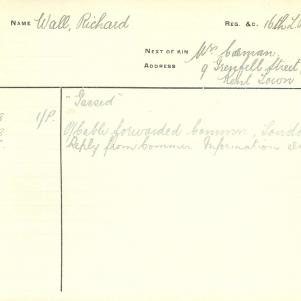 NAME Wall, Richard REG. &C. 16th L
NEXT OF KIN Mr
ADDRESS 9 Grenfell Street,
Kent Town
"Gassed"
1/P. Cable forwarded Common, Londo
Reply from Commer Information